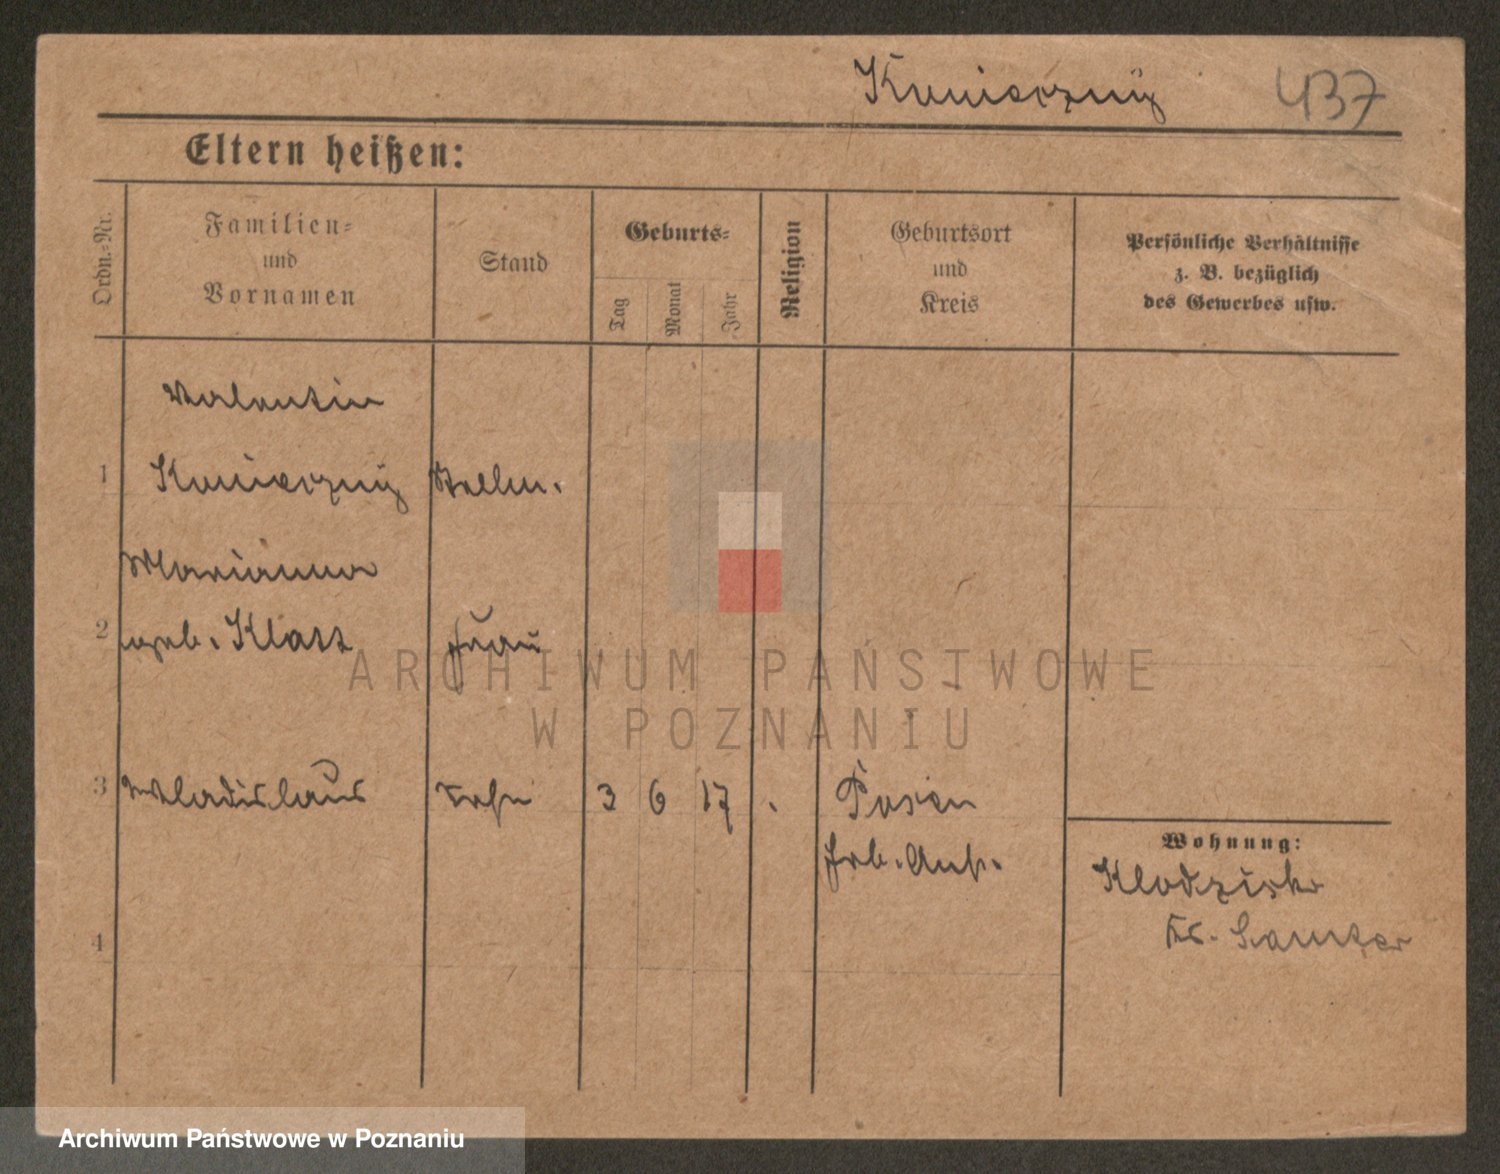 Kunierzny 437
Eltern heißen:
Ordn.-Nr.
Familien-
und
Vornamen
Stand
Geburts-
Tag
Monat
Jahr
Religion
Geburtsort
und
Kreis
Persönliche Verhältnisse
z. B. bezüglich
des Gewerbes usw.
Valentin
1 Kunierzny Stellm.
Marianna
2 geb. Klatt Frau
3 Wladislaus Sohn 3 6 17 . Posen
Wohnung:
4
Kr. Samter
ARCHIWUM PAŃSTWOWE
W POZNANIU
Archiwum Państwowe w Poznaniu